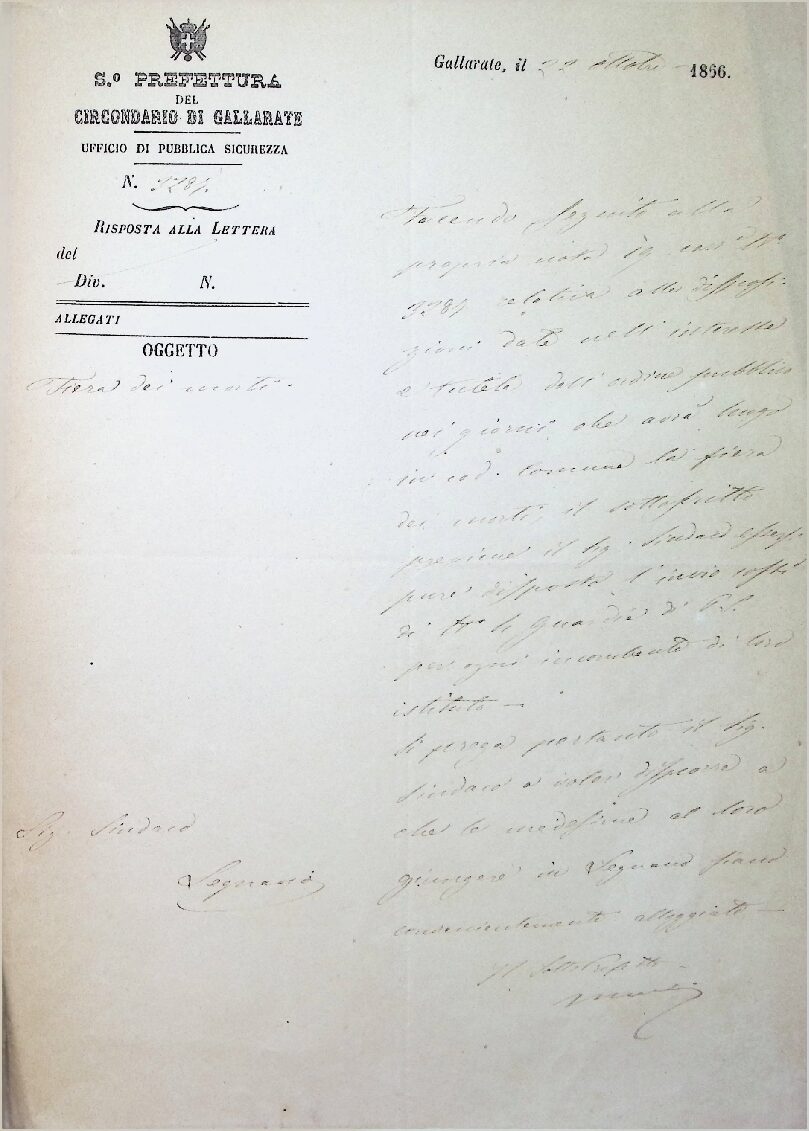 S.º PREFETTURA
DEL
CIRCONDARIO DI GALLARATE
UFFICIO DI PUBBLICA SICUREZZA
N. 3284
RISPOSTA ALLA LETTERA
del
Div. N.
ALLEGATI
OGGETTO
Fiera dei morti.
Sig. Sindaco
Legnano
Gallarate, il 22 ottobre 1866.
Facendo seguito alla
propria nota
3284 relativa alle disposi-
zioni date nell'interesse
e tutela dell'ordine pubblico
nei giorni che avrà luogo
in cod. Comune la fiera
dei morti, il sottoscritto
previene il Sig. Sindaco
pure disposto l'invio costì
di Guardie di P.S.
per ogni incombente di loro
istituto —
Si prega pertanto il Sig.
Sindaco a voler disporre a
che le medesime al loro
giungere in Legnano siano
convenientemente alloggiate —
Il Sotto Prefetto